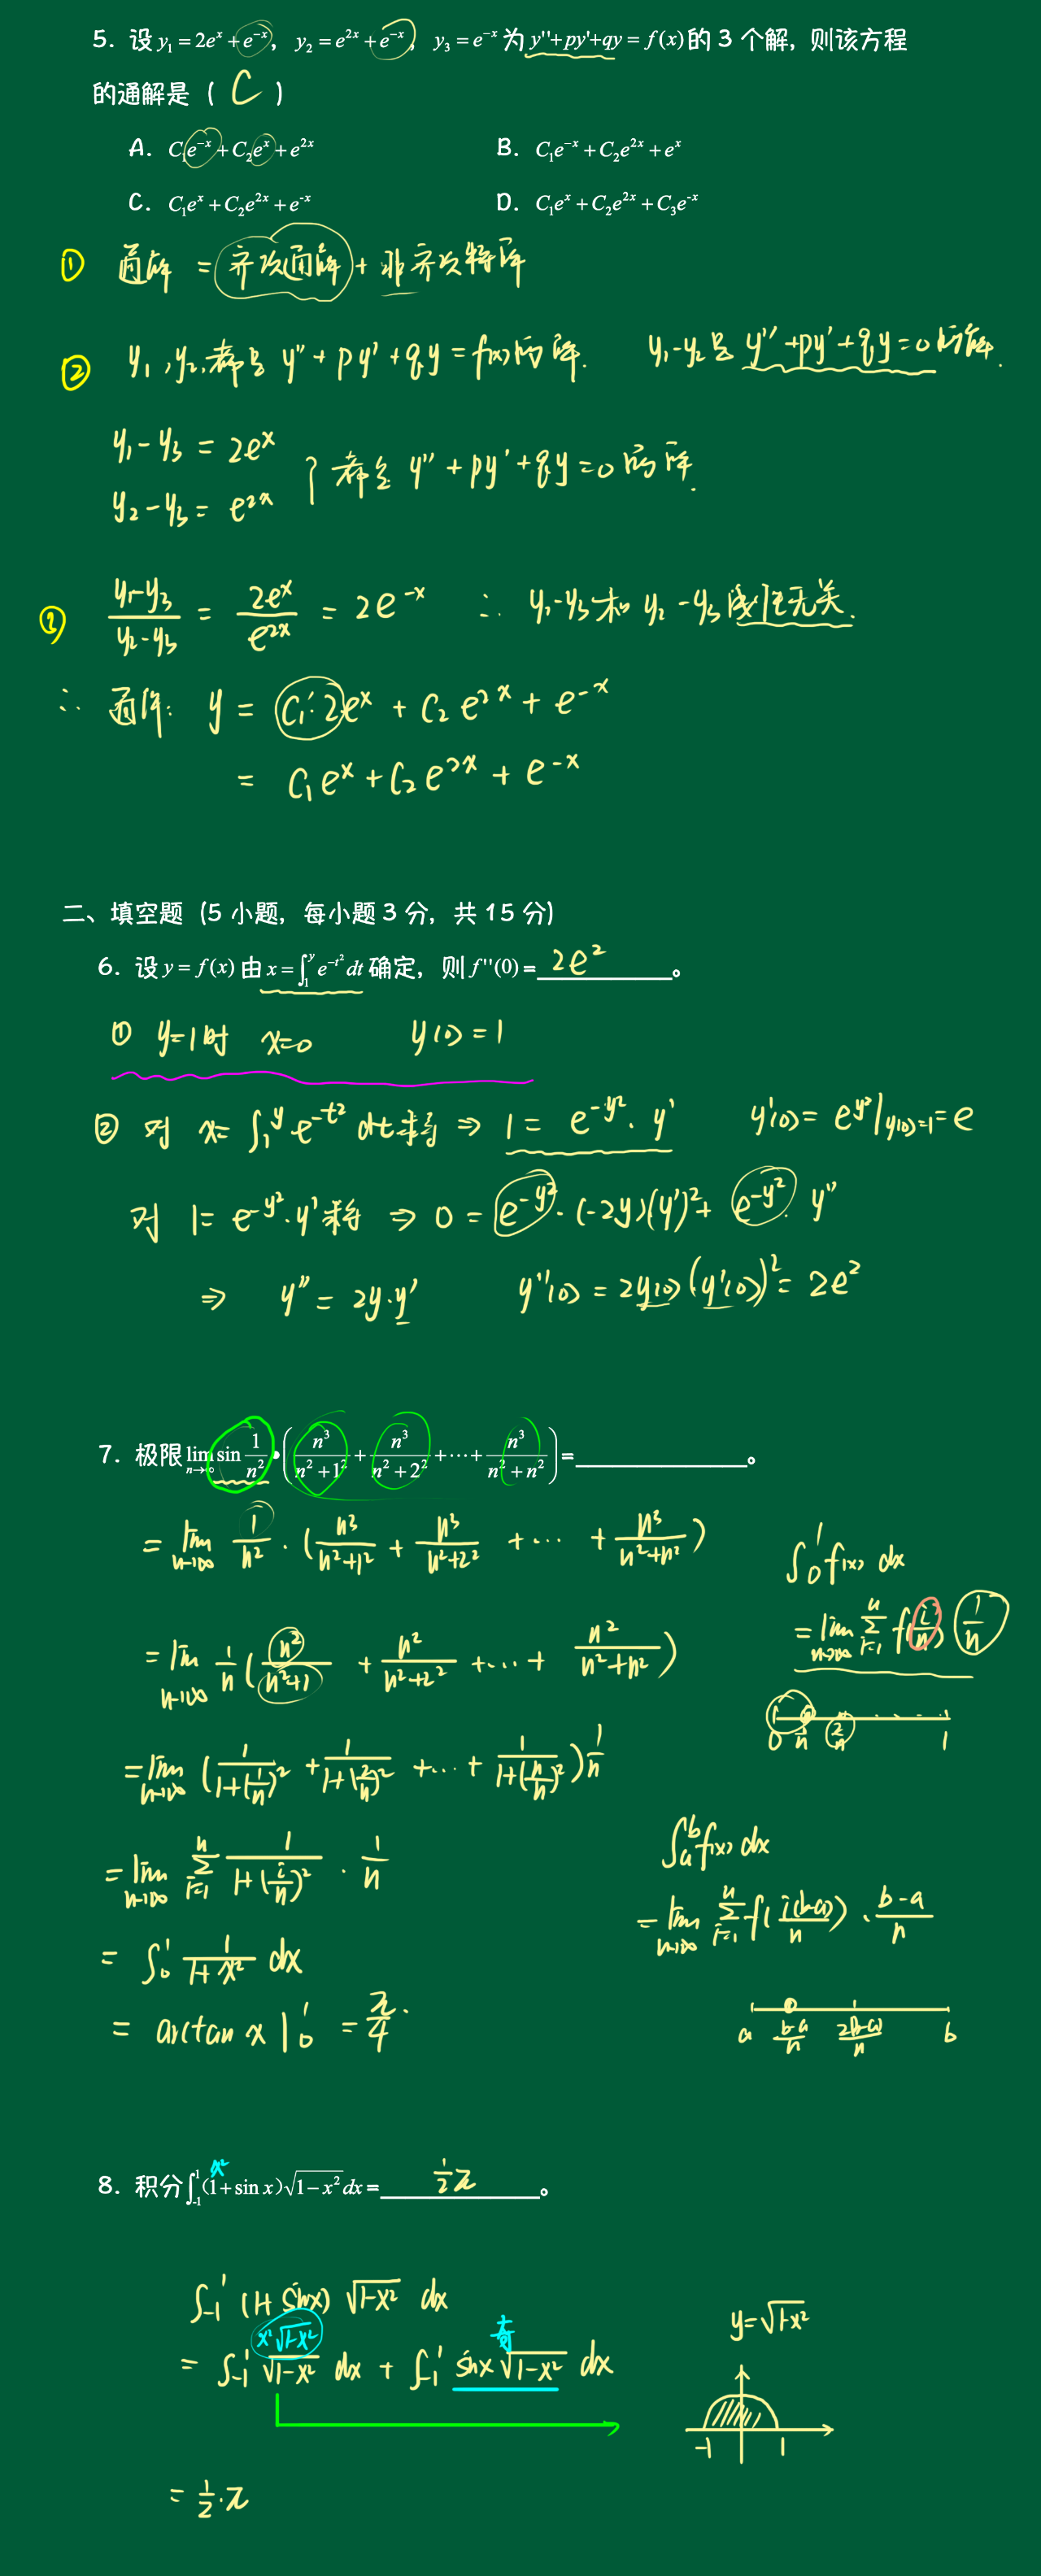 5. 设 y₁ = 2eˣ + e⁻ˣ, y₂ = e²ˣ + e⁻ˣ, y₃ = e⁻ˣ 为 y''+py'+qy = f(x) 的 3 个解, 则该方程
的通解是 ( C )
A. C₁e⁻ˣ + C₂eˣ + e²ˣ B. C₁e⁻ˣ + C₂e²ˣ + eˣ
C. C₁eˣ + C₂e²ˣ + e⁻ˣ D. C₁eˣ + C₂e²ˣ + C₃e⁻ˣ
① 通解 = 齐次通解 + 非齐次特解
② y₁, y₂, 都是 y'' + py' + qy = f(x) 的解. y₁-y₂ 是 y'' + py' + qy = 0 的解.
y₁ - y₃ = 2eˣ
y₂ - y₃ = e²ˣ } 都是 y'' + py' + qy = 0 的解.
③ (y₁-y₃)/(y₂-y₃) = 2eˣ/e²ˣ = 2e⁻ˣ ∴ y₁-y₃ 和 y₂-y₃ 线性无关.
∴ 通解: y = C₁'·2eˣ + C₂e²ˣ + e⁻ˣ
= C₁eˣ + C₂e²ˣ + e⁻ˣ
二、填空题 (5 小题, 每小题 3 分, 共 15 分)
6. 设 y = f(x) 由 x = ∫₁^y e^(-t²) dt 确定, 则 f''(0) = 2e² 。
① y=1时 x=0 y(0) = 1
② 对 x = ∫₁^y e^(-t²) dt 求导 ⇒ 1 = e^(-y²) · y' y'(0) = e^(y²)|y(0)=1 = e
对 1 = e^(-y²)·y' 求导 ⇒ 0 = e^(-y²)·(-2y)(y')² + e^(-y²)·y''
⇒ y'' = 2y·y' y''(0) = 2y(0)(y'(0))² = 2e²
7. 极限 lim n→∞ sin 1/n² • (n³/(n²+1²) + n³/(n²+2²) + ⋯ + n³/(n²+n²)) = 。
= lim n→∞ 1/n² · (n³/(n²+1²) + n³/(n²+2²) + ⋯ + n³/(n²+n²))
∫₀¹ f(x) dx
= lim n→∞ Σ i=1 n f(i/n) 1/n
= lim n→∞ 1/n (n²/(n²+1) + n²/(n²+2²) + ⋯ + n²/(n²+n²))
0 1/n 2/n 1
= lim n→∞ (1/(1+(1/n)²) + 1/(1+(2/n)²) + ⋯ + 1/(1+(n/n)²)) 1/n
= lim n→∞ Σ i=1 n 1/(1+(i/n)²) · 1/n
∫ₐᵇ f(x) dx
= lim n→∞ Σ i=1 n f(i(b-a)/n) · (b-a)/n
= ∫₀¹ 1/(1+x²) dx
= arctan x |₀¹ = π/4.
a (b-a)/n 2(b-a)/n b
8. 积分 ∫₋₁¹ (1+sin x)√(1-x²) dx = ½π 。
x²
∫₋₁¹ (1+sinx) √(1-x²) dx
y = √(1-x²)
x²√(1-x²) 奇
= ∫₋₁¹ √(1-x²) dx + ∫₋₁¹ sinx √(1-x²) dx
-1 1
= ½·π